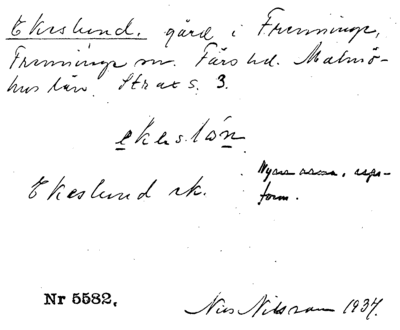 Ekeslund. gård i Frenninge,
Frenninge sn. Färs hd. Malmö-
hus län. Strax s. 3.
ekeslón
Ekeslund rk.
form.
Nr 5582.
Nils Nilsson 1937.